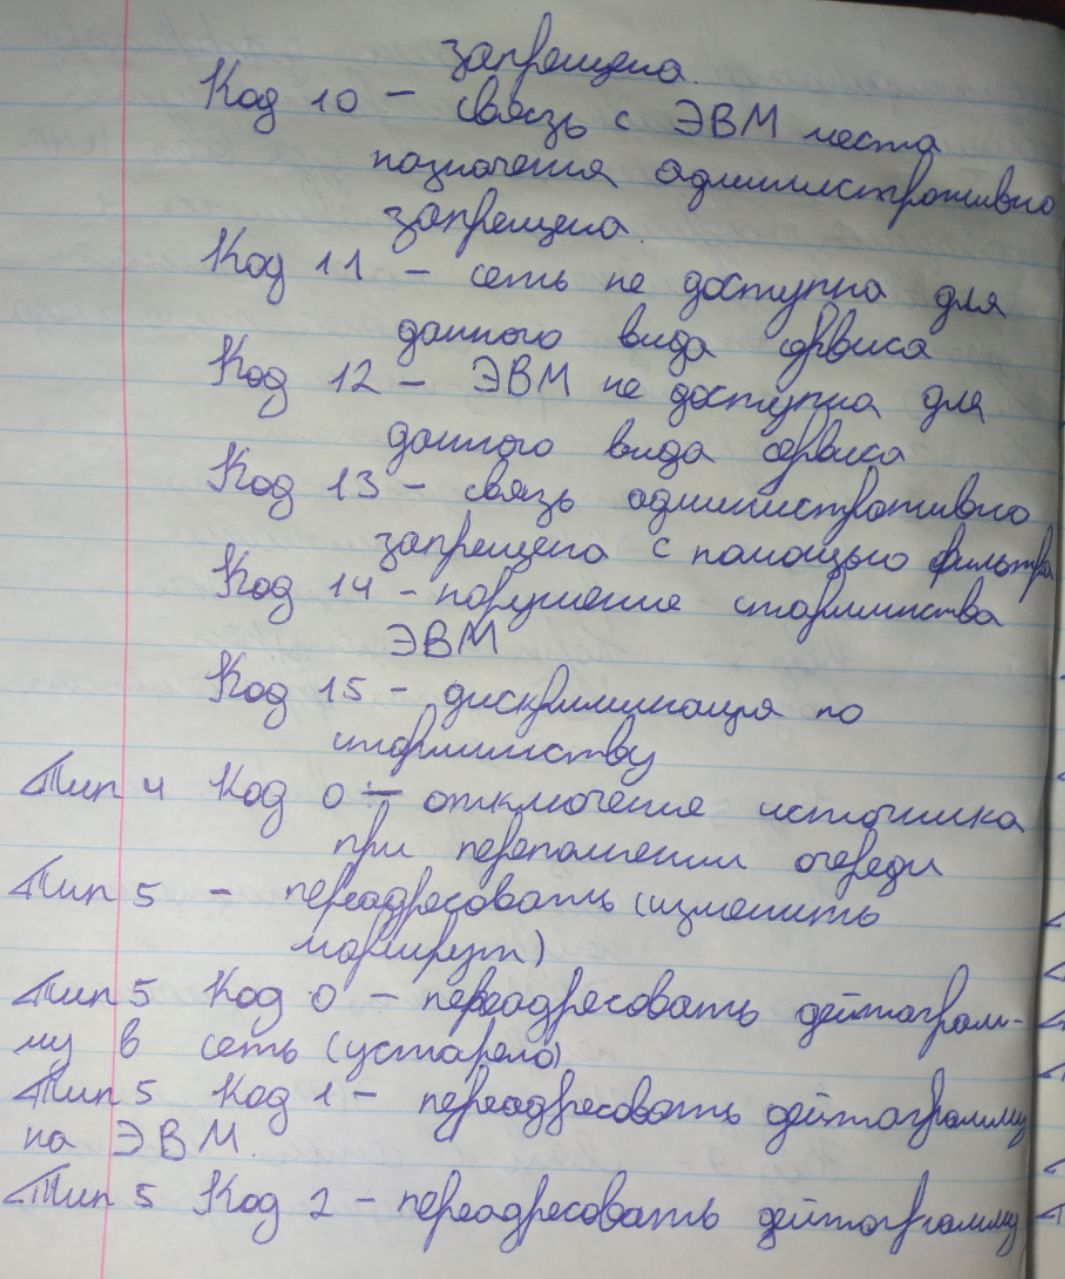 запрещена.
Код 10 - связь с ЭВМ места
назначения административно
запрещена.
Код 11 - сеть не доступна для
данного вида сервиса
Код 12 - ЭВМ не доступна для
данного вида сервиса
Код 13 - связь административно
запрещена с помощью фильтра
Код 14 - нарушение старшинства
ЭВМ
Код 15 - дискриминация по
старшинству
Тип 4 Код 0 - отключение источника
при переполнении очереди
Тип 5 - переадресовать (изменить
маршрут)
Тип 5 Код 0 - переадресовать дейтаграм-
му в сеть (устарело)
Тип 5 Код 1 - переадресовать дейтаграмму
на ЭВМ.
Тип 5 Код 2 - переадресовать дейтаграмму